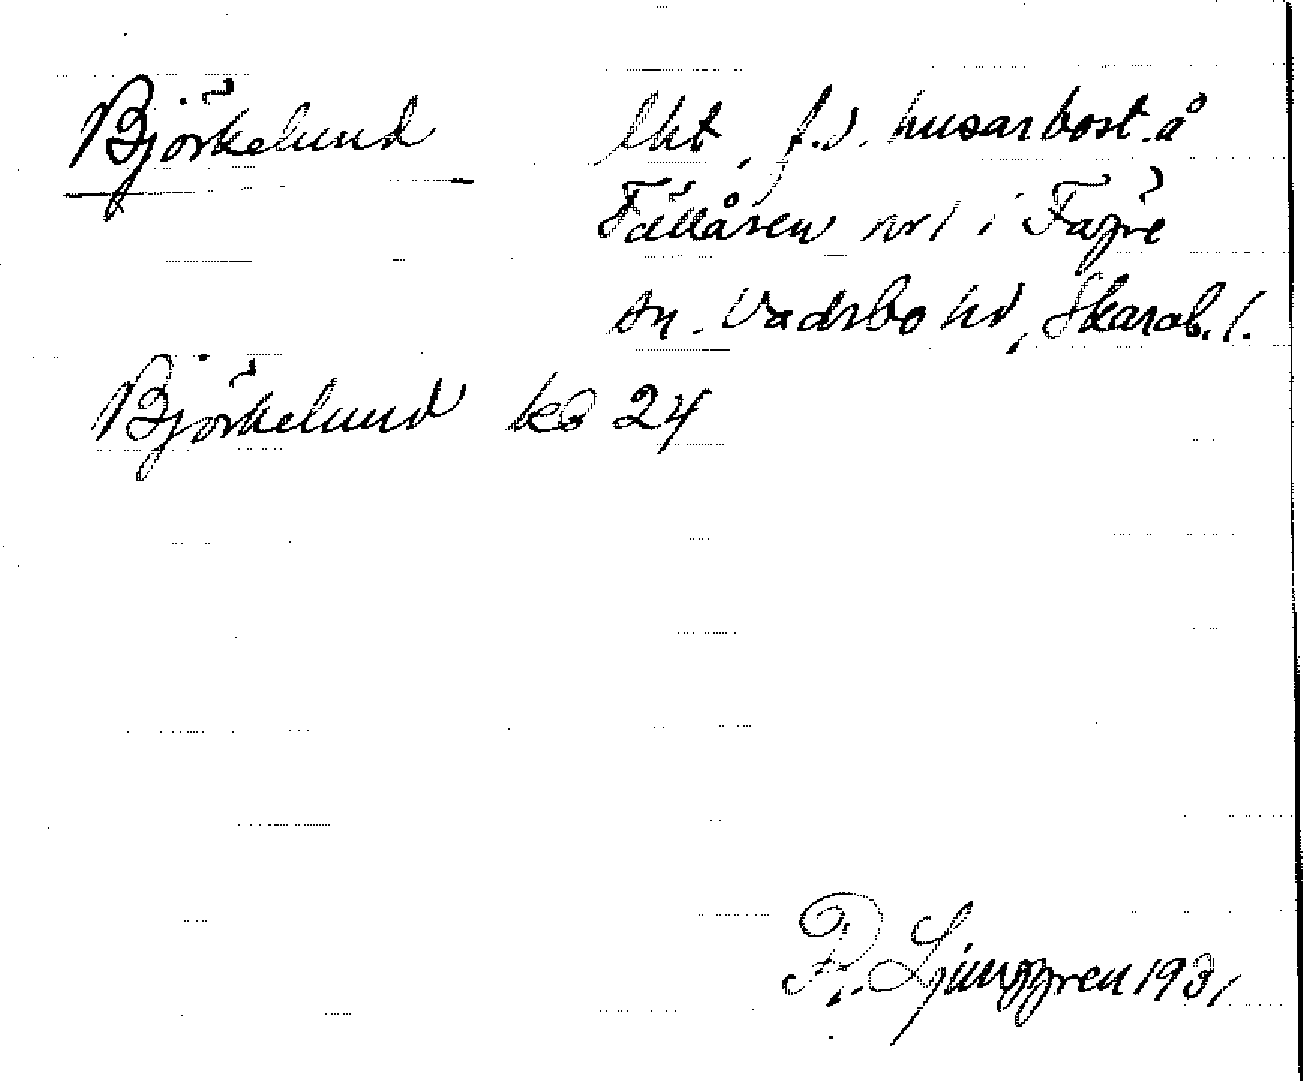 Björkelund lht, f.d. husarbost. å
Fällåsen nr 1 i Fägre
sn. Vadsbo hd, Skarab. l.
Björkelund ks 24
Fr. Ljunggren 1931